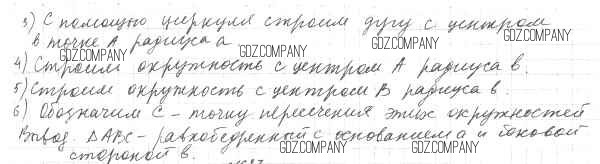 3) С помощью циркуля строим дугу с центром
в точке А радиуса а
GDZ.COMPANY GDZ.COMPANY GDZ.COMPANY
4) Строим окружность с центром А радиуса в.
5) Строим окружность с центром В радиуса в.
6) Обозначим С - точку пересечения этих окружностей
GDZ.COMPANY GDZ.COMPANY GDZ.COMPANY
Вывод. ΔАВС - равнобедренный с основанием а и боковой
стороной в.
GDZ.COMPANY GDZ.COMPANY